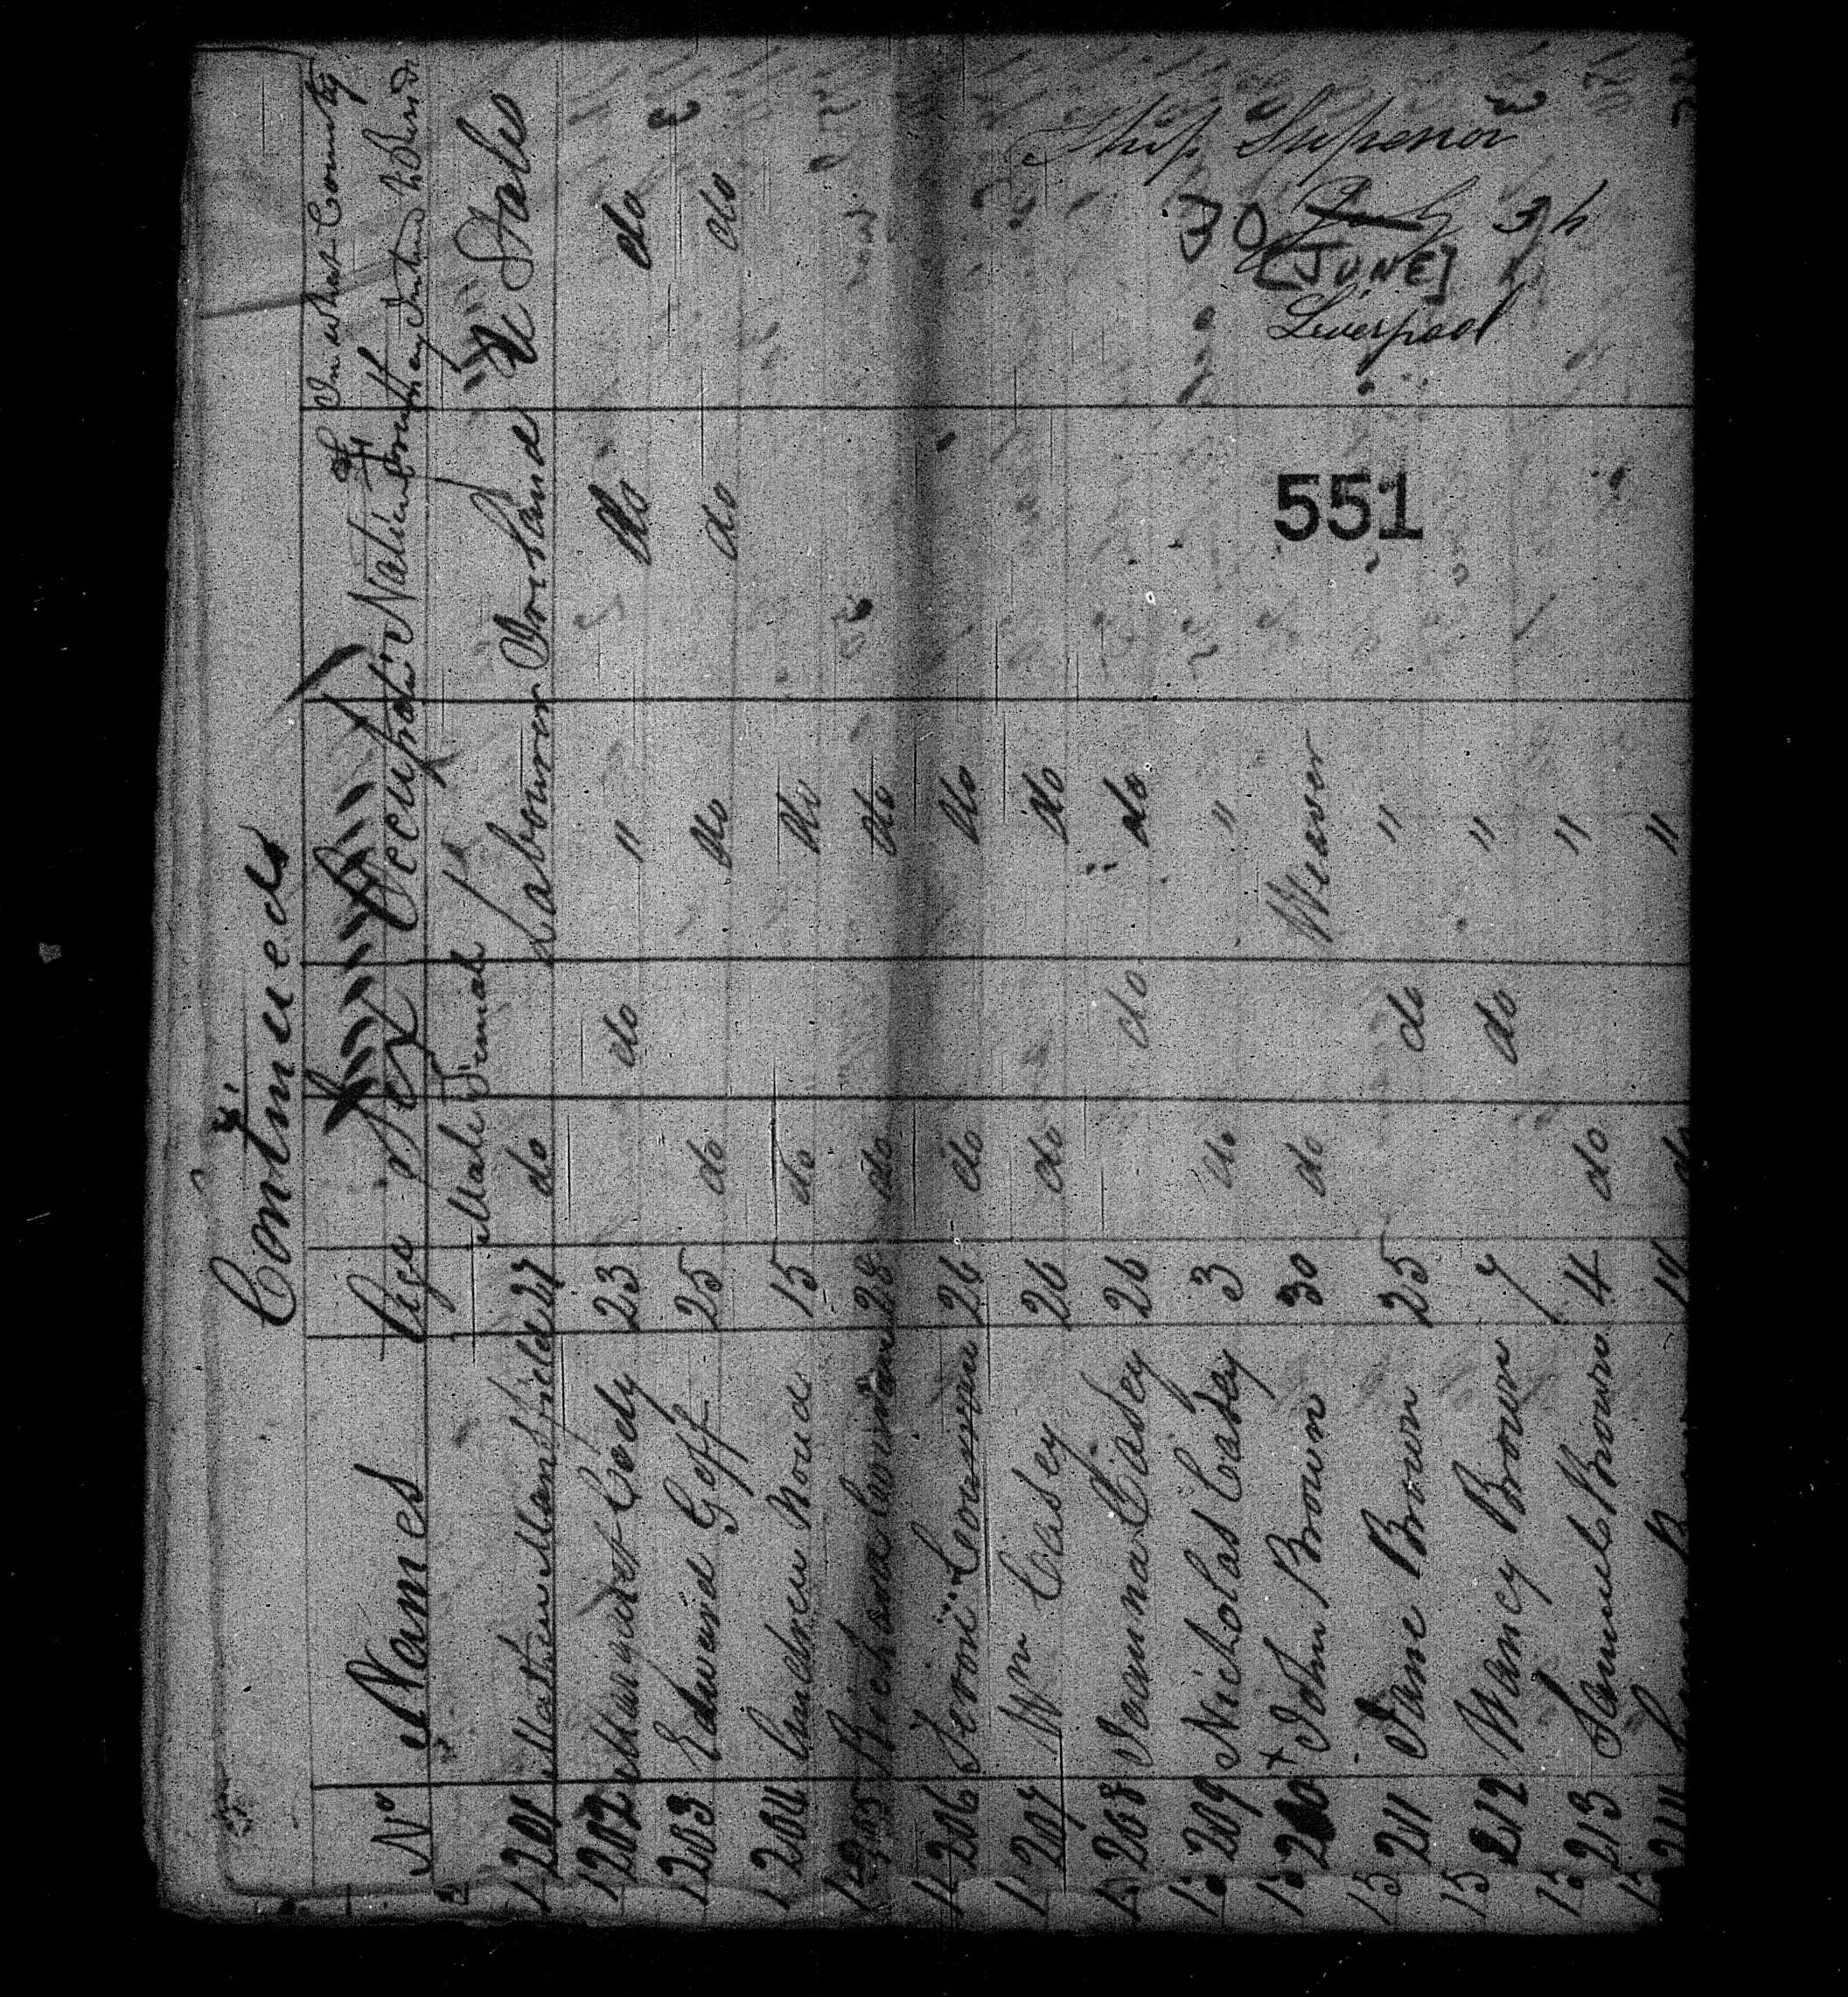 Continued
Nº Names Age Sex Occupatio Native of In what Country they Intend to Reside
Male Female
201 Mathew Mansfield 27 do Labourer Ireland U States
202 Margaret Cody 23 do " do do
203 Edward Goff 25 do do do do
204 Andrew 15 do do
205 Richard 28 do do
206 26 do do
207 Wm Casey 26 do do
208 Casey 26 do do
209 Nicholas Casey 3 do "
210 + John Brown 30 do Weaver
211 Jane Brown 25 do "
212 Nancy Brown 7 do "
213 Samuel Brown 4 do "
do "
Ship Superior
30 July 34
[JUNE]
Liverpool
551